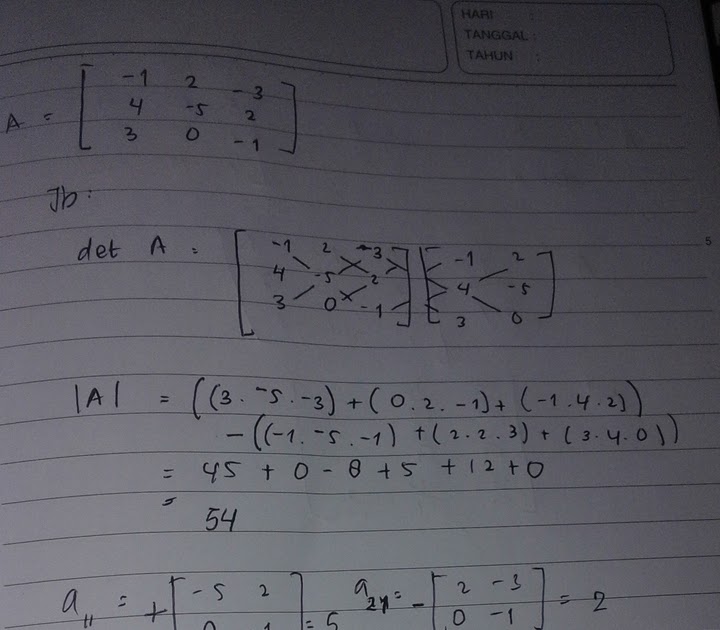 HARI :
TANGGAL :
TAHUN :
A = [ -1 2 -3
4 -5 2
3 0 -1 ]
Jb :
5
det A = [ -1 2 -3 ] [ -1 2 ]
4 -5 2 4 -5
3 0 -1 3 0
|A| = ((3 . -5 . -3) + (0 . 2 . -1) + (-1 . 4 . 2))
- ((-1 . -5 . -1) + (2 . 2 . 3) + (3 . 4 . 0))
= 45 + 0 - 8 + 5 + 12 + 0
=
54
a11 = + [ -5 2 ] = 5 a21 = - [ 2 -3 ] = 2
0 1 0 -1